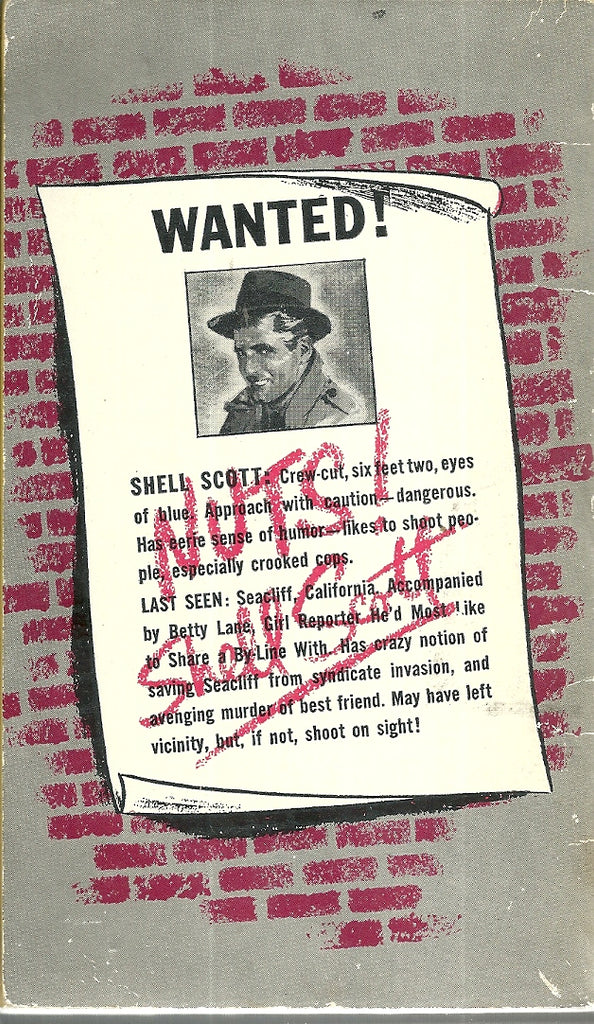 WANTED!
SHELL SCOTT: Crew-cut, six feet two, eyes
of blue. Approach with caution—dangerous.
Has eerie sense of humor—likes to shoot peo-
ple, especially crooked cops.
LAST SEEN: Seacliff, California. Accompanied
by Betty Lane, Girl Reporter He'd Most Like
to Share a By-Line With. Has crazy notion of
saving Seacliff from syndicate invasion, and
avenging murder of best friend. May have left
vicinity, but, if not, shoot on sight!
NUTS!
Shell Scott